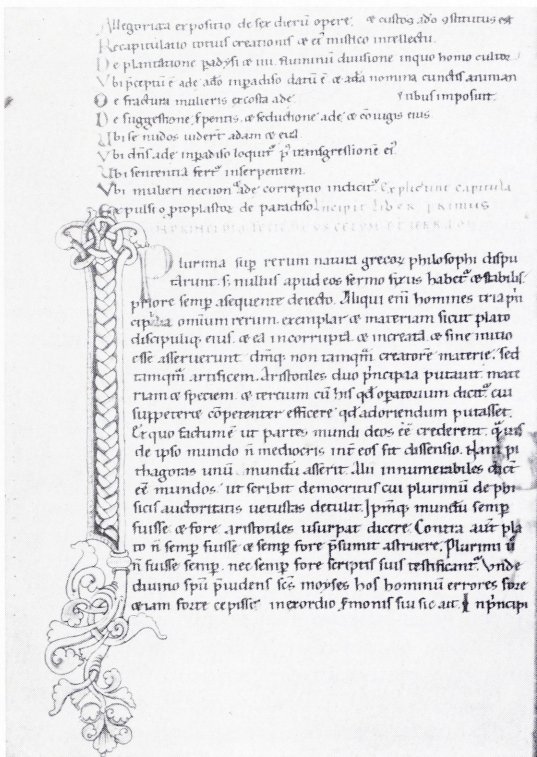 Allegorica expositio de sex dierū opere. & custos ado ꝯstitutus est
Recapitulatio totius creationis & ei mistico intellectu.
De plantatione padysi & iiii. fluminū diuisione inquo homo cultor
Vbi p̄ceptū ē ade a inpadiso datū ē & ada nomina cunctis animan
De fractura mulieris excosta ade. tibus imposuit.
De suggestione serpentis. & seductione ade & cōiugis eius.
Vbi se nudos uidert adam & eua.
Vbi dn̄s ade inpadiso loquit᷑ p̄ transgressionē ei᷑
Vbi sententia fert᷑ inserpentem.
Vbi mulieri necnon ade correptio indicit᷑. Expliciunt capitula
Expulsio ꝓtoplastor̄ de paradiso Incipit liber primus
INPRINCIPIO FECIT DEUS CELUM ET TERRAM
Plurima sup̄ rerum natura grecor̄ philosophi dispu
tarunt. s; nullus apud eos sermo fixus habet᷑ & stabilis.
priore semp̄ asequente deiecto. Aliqui eni᷑ homines tria pn
cipia omnium rerum. exemplar & materiam sicut plato
discipuliq; eius. & ea incorrupta. & increata. & sine initio
esse asseruerunt. dm̄q; non tamqm̄ creatorē materie. sed
tamqm̄ artificem. Aristotiles duo p̄ncipia putauit. mate
riam & speciem. & tercium cū his qd̄ opatorium dicit᷑. cui
suppeterit cōpetenter efficere qd̄ adoriendum putasset.
Ex quo factum ē ut partes mundi deos eē crederent. q̄uis
de ipso mundo n̄ mediocris int̄ eos fit dissensio. Nam pi
thagoras unū mundū asserit. Alii innumerabiles dic̄t
eē mundos. ut scribit democritus cui plurimū de phi
sicis auctoritatis uetustas detulit. Ipm̄q; mundū semp̄
fuisse & fore aristotiles usurpat dicere. Contra aut̄ pla
to n̄ semp̄ fuisse & semp̄ fore p̄sumit astruere. Plurimi ū
n̄ fuisse semp̄. nec semp̄ fore scriptis suis testificant᷑. Vnde
diuino spū p̄uidens scs̄ moyses hos hominū errores fore
& iam forte cepisse. inexordio s̄monis sui sic ait. Inp̄ncipi